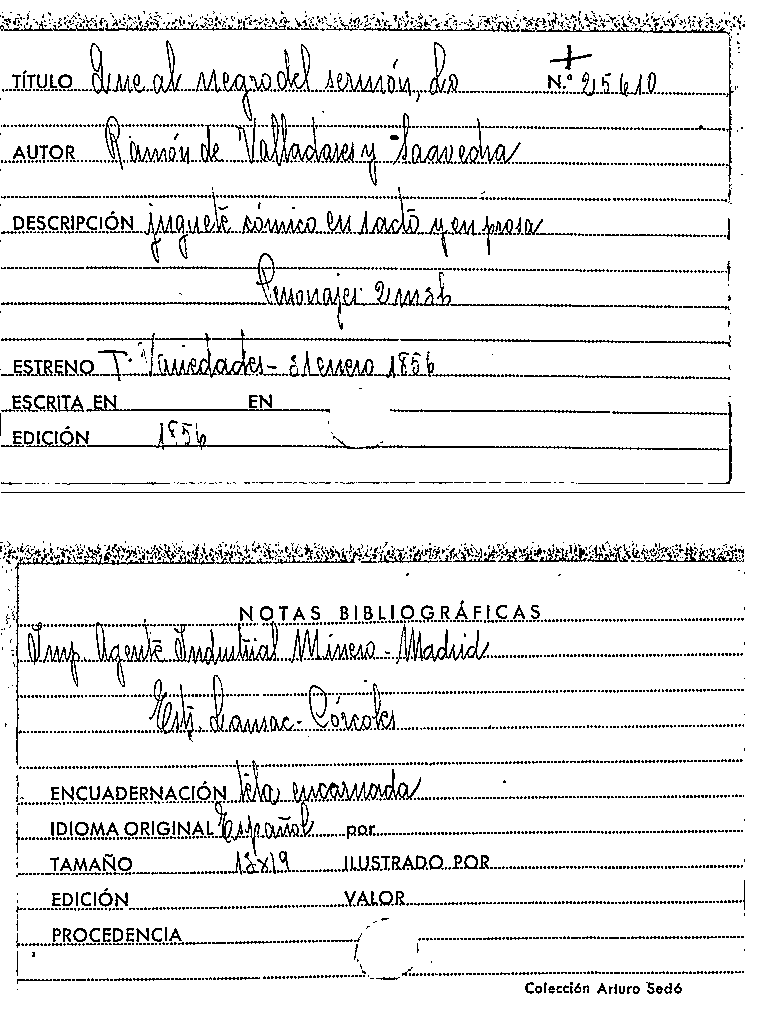 TÍTULO Que al negro del sermón, Lo N.º 25610
AUTOR Ramón de Valladares y Saavedra
DESCRIPCIÓN juguete cómico en 1 acto y en prosa
Personajes 2m
ESTRENO T. Variedades - enero 1856
ESCRITA EN EN
EDICIÓN 1856
NOTAS BIBLIOGRÁFICAS
Imp. Agente Industrial Minero - Madrid
Est. Lansac - Córcoles
ENCUADERNACIÓN tela encarnada
IDIOMA ORIGINAL Español por
TAMAÑO 13x19 ILUSTRADO POR
EDICIÓN VALOR
PROCEDENCIA
Colección Arturo Sedó